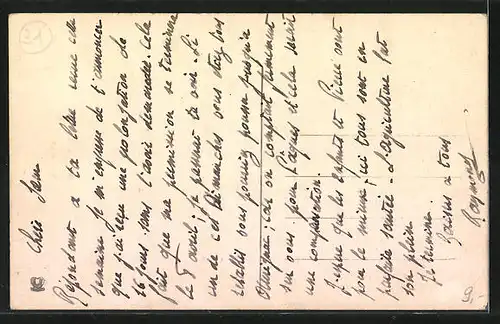 21
Chère Jane
Répondant à ta lettre reçue cette
semaine je m'empresse de t'annoncer
que j'ai reçu une prolongation de
26 jours sans l'avoir demandée. Cela
fait que ma permission se terminera
le 8 avril; je pensais ta voir. Si
un de ces Dimanches vous étiez tous
rétablis vous pourriez pousser jusqu'à
car on comptait fermement
sur vous pour Pâques et cela serait
une compensation.
J'espère que les enfants et Pierre sont
pour le mieux; ici tous sont en
parfaite santé. L'agriculture fut
son plein.
Je termine.
Baisers à tous
Raymond
9.-